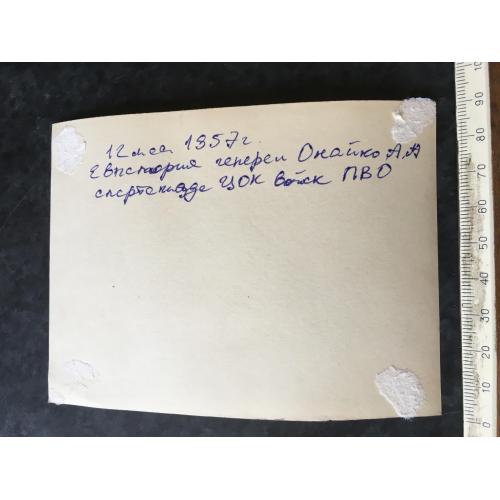 12 мая 1957 г.
Евпатория генерал Онайко А.А
спартакиаде ЦОК войск ПВО
0
10
20
30
40
50
60
70
80
90
100